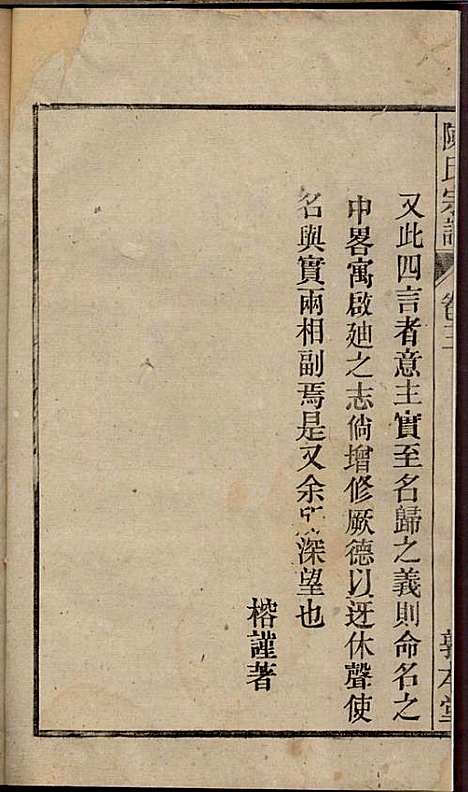 陳氏宗譜 卷三 敦本堂
又此四言者意主實至名歸之義則命名之
中畧寓啟廸之志倘增修厥德以迓休聲使
名與實兩相副焉是又余 深望也
榕謹著